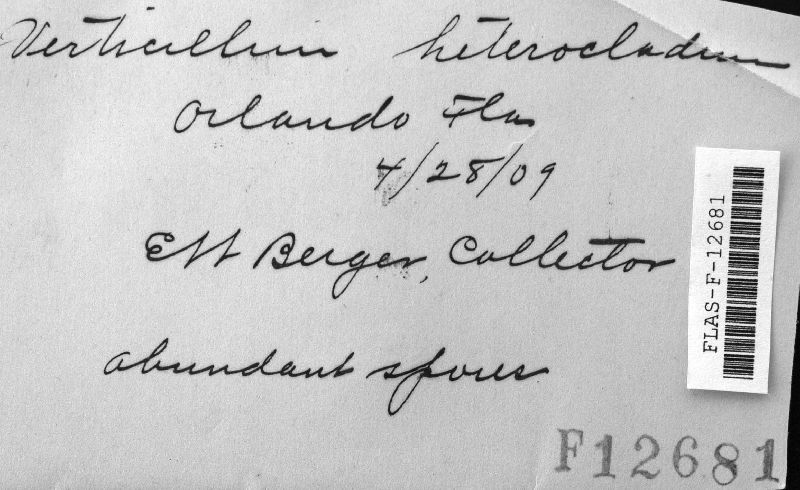 Verticillium heterocladium
Orlando Fla
4/28/09
EW Berger, Collector
abundant spores
FLAS-F-12681
F12681